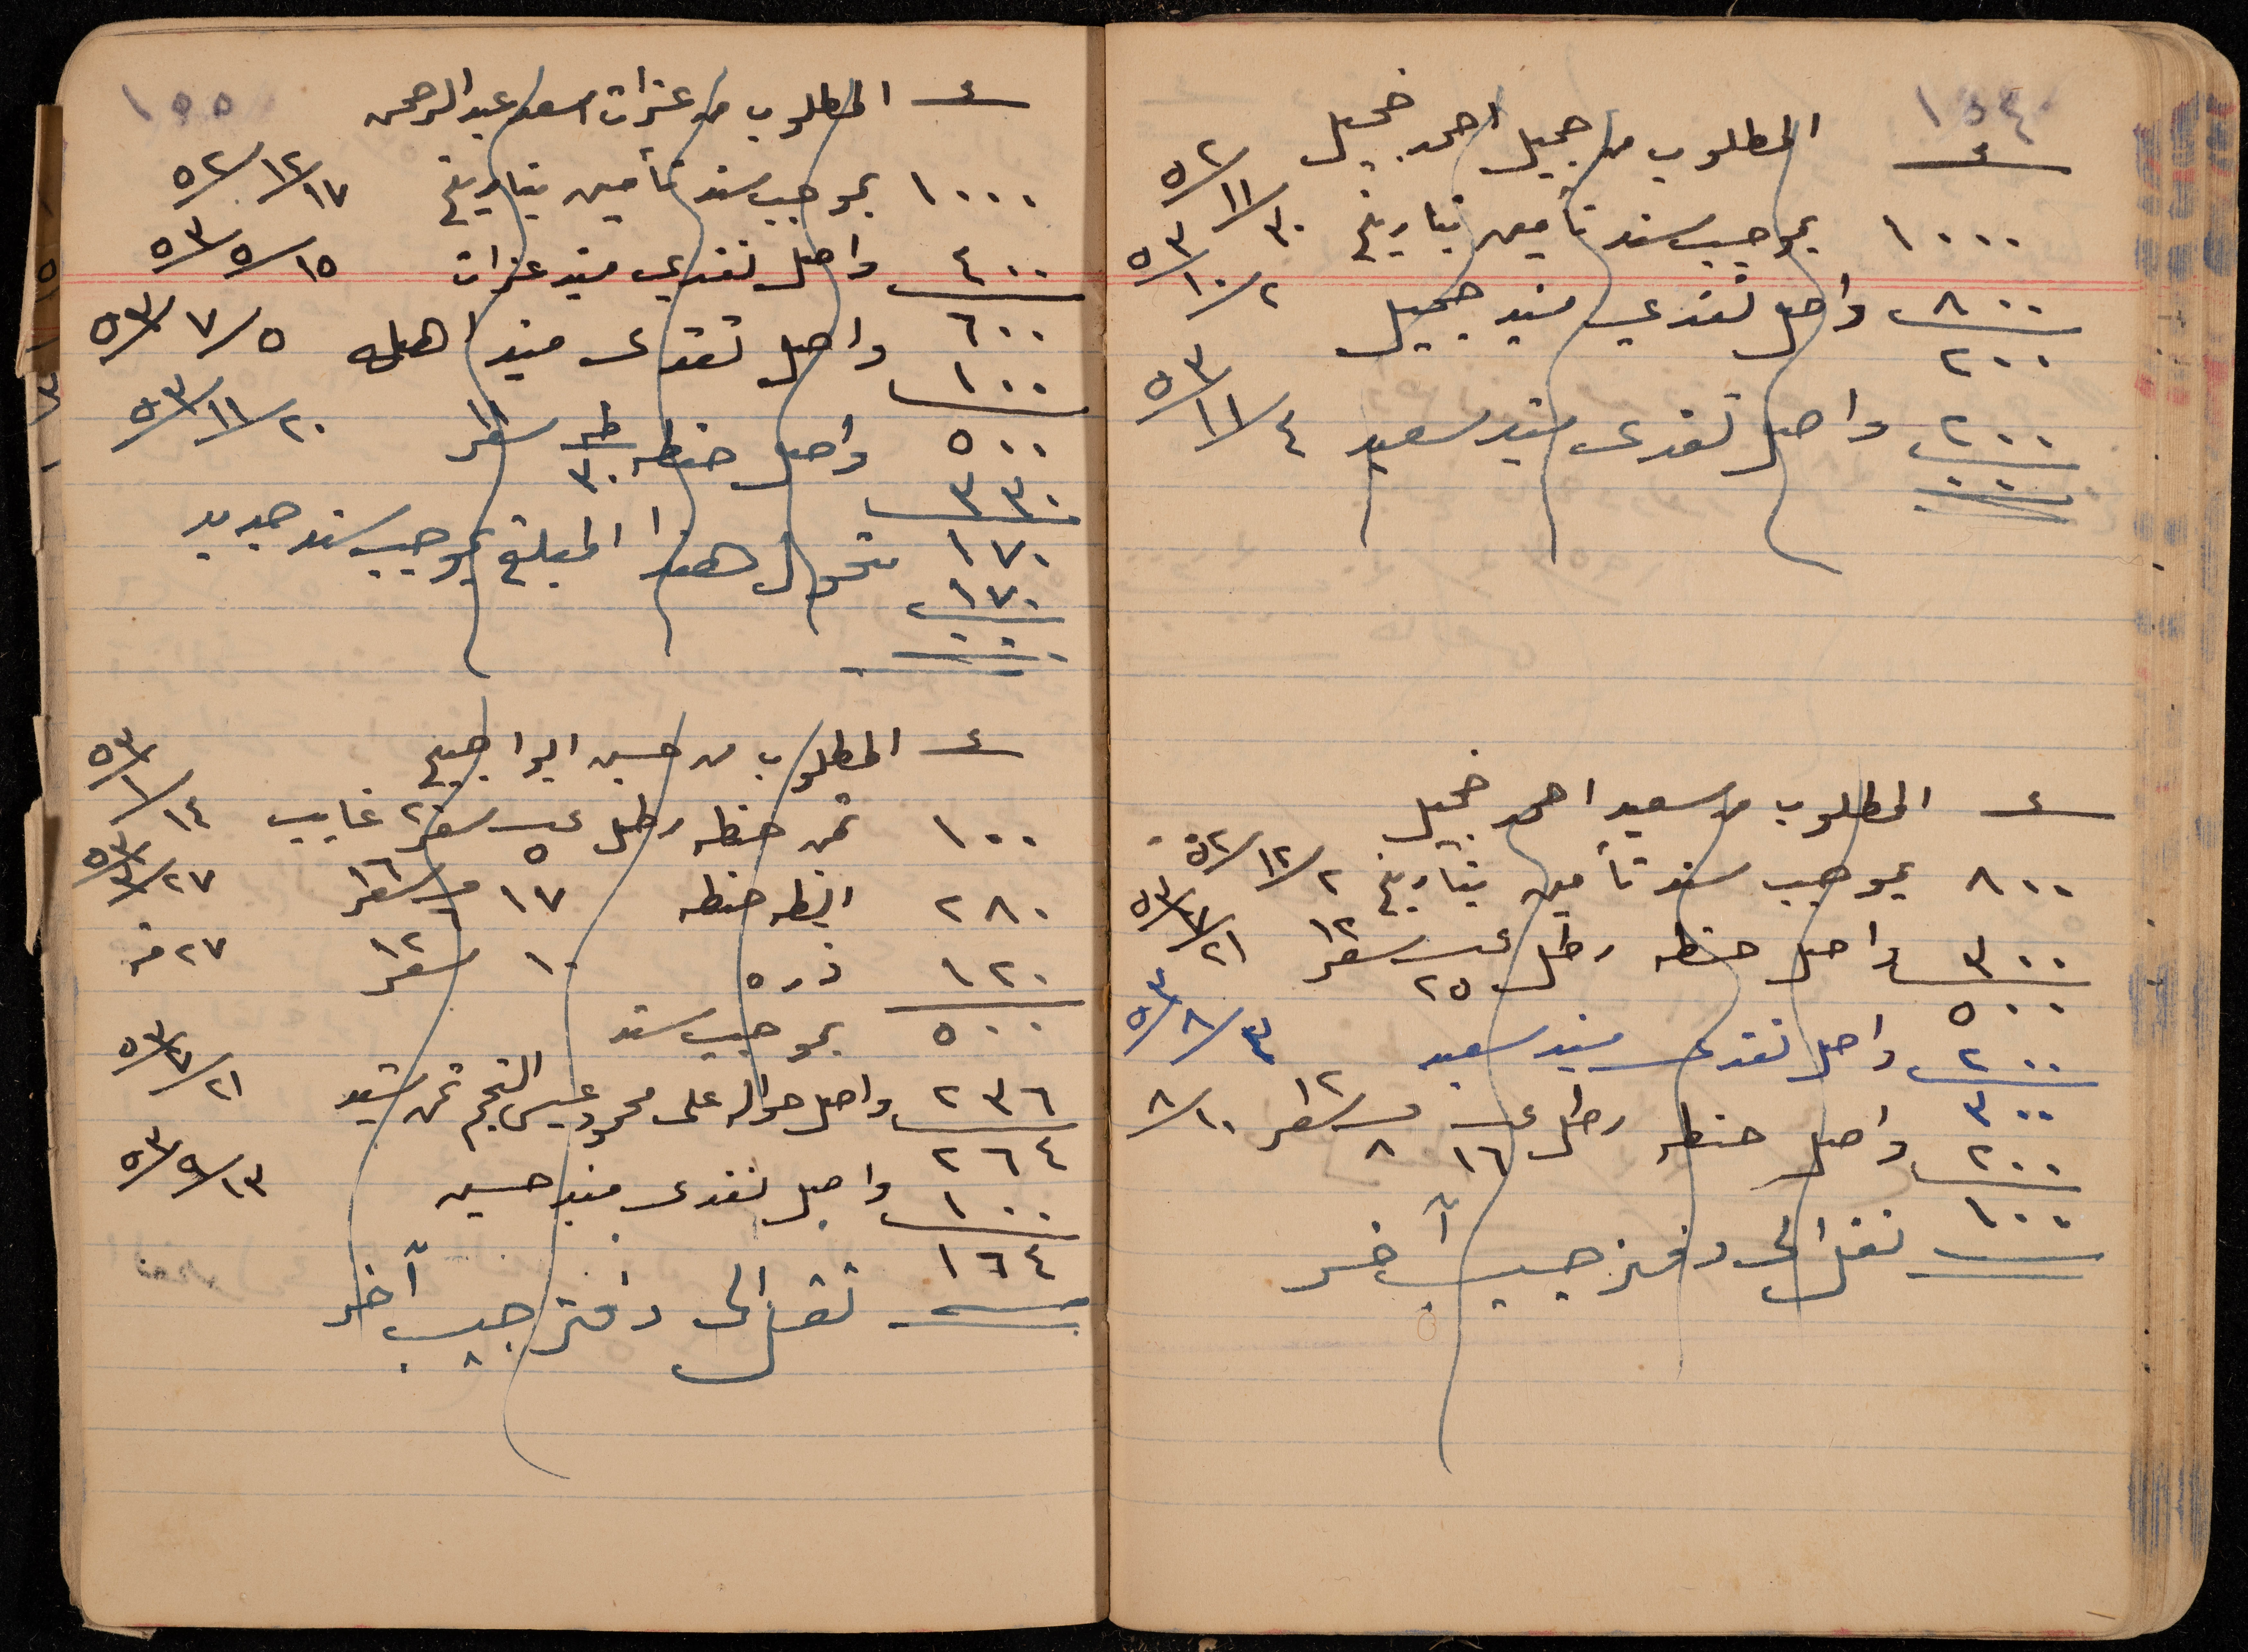 ١٥٤
المطلوب من جميل احمد خميل
١٠٠٠ بموجب سند تأمين بتاريخ ٣٠/١١/٥٢
٨٠٠ واصل نقدي منيد جميل ٢/١٠/٥٣
٢٠٠
٢٠٠ واصل نقدي منيد سعيد ٤/١١/٥٣
٠٠٠
المطلوب من سعيد احمد خميل
٨٠٠ بموجب سند تأمين بتاريخ ٢/١٢/٥٢
٣٠٠ واصل حنطه رطل عـ ٢٥ سعر ١٢ ٢١/٧/٥٣
٥٠٠
٢٠٠ واصل نقدى منيد سعيد ٣/٨/٥٣
٣٠٠
٢٠٠ واصل حنطه رطل عـ ١٦ سعر ١٢ ١٠/٨
١٠٠ نقل الى دفتر جيب آخر
١٥٥
المطلوب من عزات اسعد عبد الرحمن
١٠٠٠ بموجب سند تأمين بتاريخ ١٧/١٢/٥٢
٤٠٠ واصل نقدي منيد عزات ١٥/٥/٥٣
٦٠٠
١٠٠ واصل نقدى منيد اهله ٥/٧/٥٣
٥٠٠
٣٣٠ واصل حنطه ط ٣٠ سعر ١١ ٢٠/١١/٥٣
١٧٠ تحول هذا المبلغ بموجب سند جديد
١٧٠
٠٠٠
المطلوب من حسين ابو اجبيح
١٠٠ ثمن حنطه رطل عـ ٥ سعر ٢٠ غايب ١٤/١/٥٣
٢٨٠ ايظه حنطه ١٧ سعر ١٦ ٢٧/٣/٥٣
١٢٠ ذره ١٠ سعر ١٢ ٢٧ منه
٥٠٠ بموجب سند
٢٣٦ واصل حواله على محمود عيسى النجم ثمن شيد ٢١/٧/٥٣
٢٦٤
١٠٠ واصل نقدى منيد حسين ١٣/٩/٥٣
١٦٤
نقل الى دفتر جيب آخر